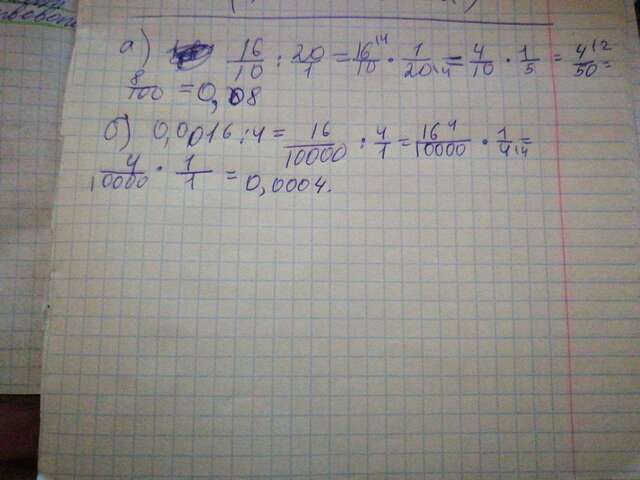 а) 16/10 : 20/1 = 16|4/10 · 1/20|4 = 4/10 · 1/5 = 4|2/50 =
8/100 = 0,08
б) 0,0016 : 4 = 16/10000 : 4/1 = 16 4/10000 · 1/4|4 =
4/10000 · 1/1 = 0,0004.